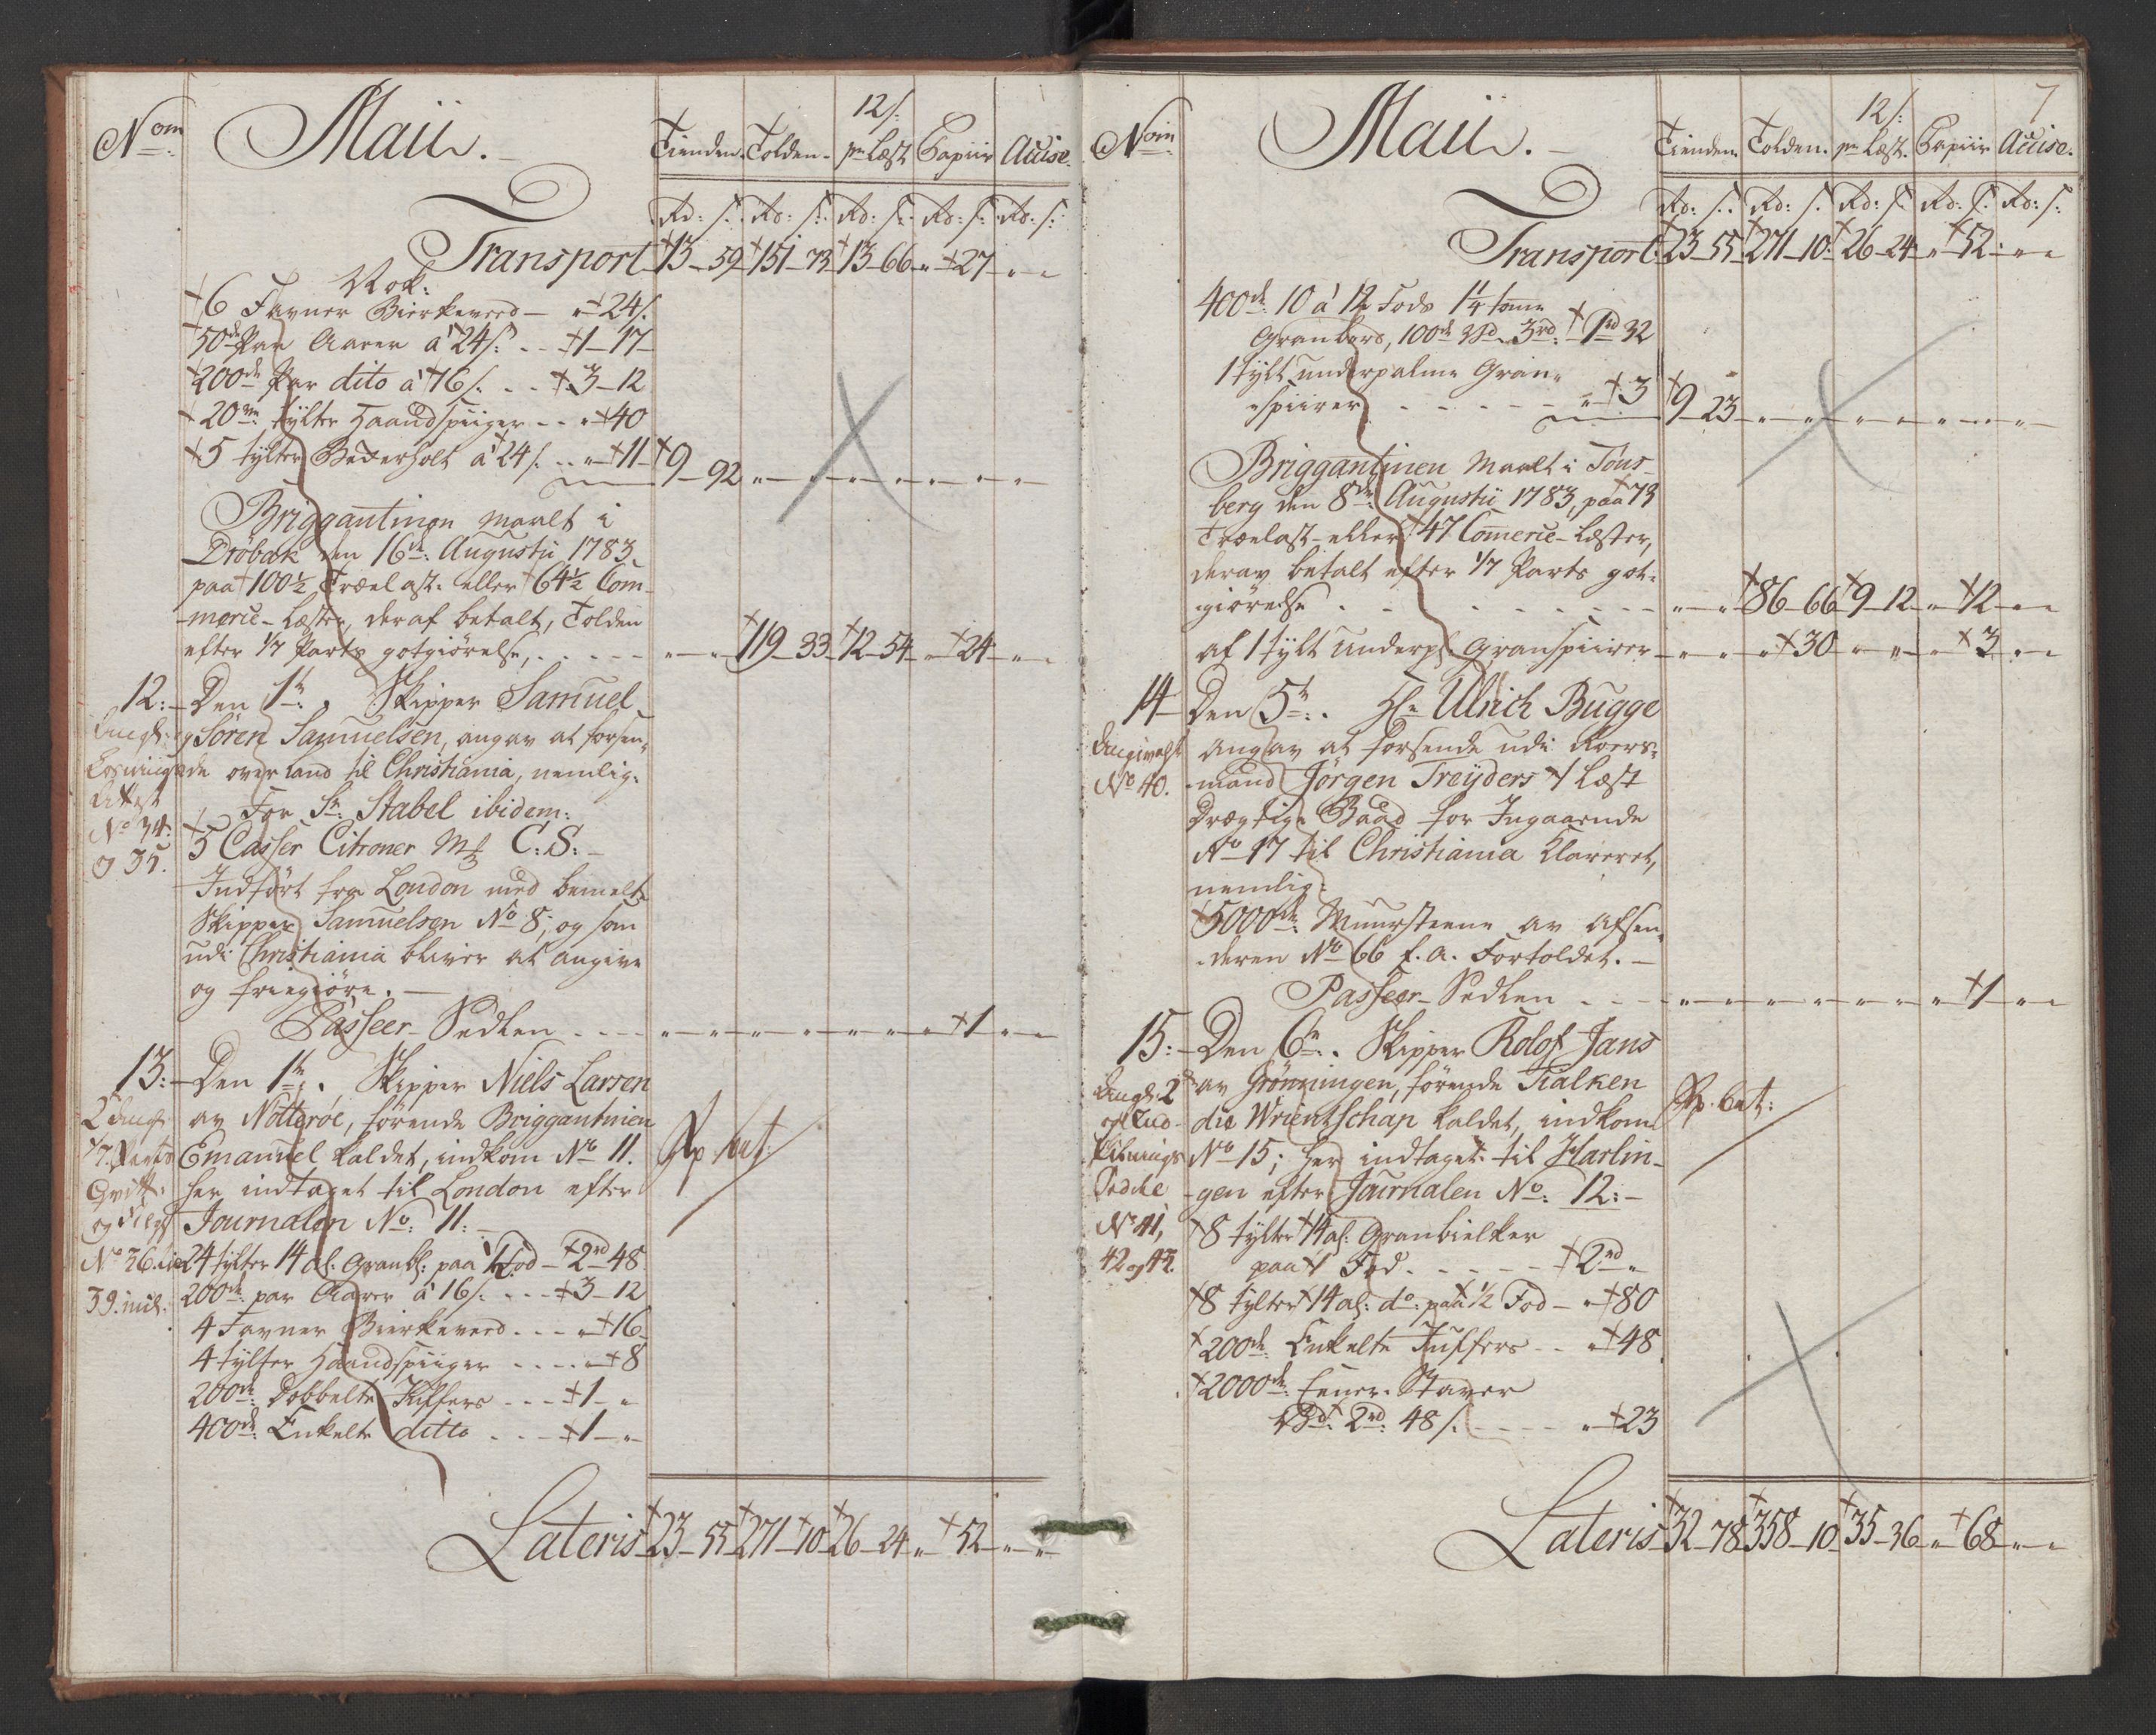 Nom Maii. Tienden. Tolden. 12 s: pr Læst Papiir Accise.
Rd: s: Rd: s: Rd: s: Rd: s: Rd: s:
Transport 13 - 59 151 - 73 13 - 66 " - 27 " - "
Nok:
6 Favner Birkeveed - " - 24 s.
50de Par Aarer á 24 s: - - 1 - 17
200de Par dito á 16 s. - - 3 - 12
20ve tylter Haandspiiger - - " - 40
5 tylter Bederholt á 24 s. - - " - 11 9 - 92
Briggantinen maalt i
Dröbak den 16de Augustii 1783
paa 100½ Trælast- eller 64½ Com-
merce-Læster, deraf betalt, Tolden
efter 1/7 Parts gotgiörelse, - - - 119 - 33 12 - 54 " - 24 " - "
12: Den 1te. Skipper Samuel
og Sören Samuelsen, angav at forsen-
de over land til Christiania, nemlig:
For Sr. Stabel ibidem:
No 34: og 35.
5 Casser Citroner Mk C: S:
Indfört fra London med bemelte
Skipper Samuelsen No 8; og som
udi Christiania bliver at angive
og friegiöre. -
Passeer-Sedlen - - - " - 1 " - "
13: Den 1te. Skipper Niels Larsen
av Nötteröe, förende Briggantinen
Emanuel kaldet, indkom No 11.
her indtaget til London efter
Journalen No: 11:
No 36. til 39. incl:
24 tylter 14 al: Granbl: paa 1 Fod - 2rd - 48
200de par Aarer á 16 s: - - - 3 - 12
4 Favner Birkeveed - - - " - 16
4 tylter Haandspiiger - - - " - 8
200de Dobbelte Juffers - - - 1 - "
400de Enkelte ditto - - - 1 - "
Lateris 23 - 55 271 - 10 26 - 24 " - 52 " - "
7
Nom Maii. Tienden. Tolden. 12 s: pr Læst. Papiir Accise.
Rd: s: Rd: s: Rd: s: Rd: s: Rd: s:
Transport 23 - 55 271 - 10 26 - 24 " - 52 " - "
400de 10 á 12 Fods 1¼ tomme
Granbord, 100de Vd. 3rd: 1rd 32
1 tylt underpalme Gran-
spiirer - - - - " - 3 9 - 23
Briggantinen maalt i Töns-
berg den 8de Augustii 1783, paa 73
Trælast- eller 47 Comerce-Læster,
derav betalt efter 1/7 Parts got-
giörelse - - - 86 - 66 9 - 12 " - 12 " - "
af 1 tylt underp: Granspiirer - " - 30 " - " " - 3 " - "
14 Den 5te. Hr Ulrich Bugge
Angivels No 40.
angav at forsende udi Roers-
mand Jörgen Treyders 1 Læst
Drægtige Baad for Ingaaende
No 17 til Christiania Klareret,
nemlig:
5000de Muursteene av afsen-
deren No 66 f. a. Fortoldet. -
Passeer-Sedlen - - - " - 1 " - "
15: Den 6te. Skipper Rolof Jans
av Grönningen, förende Tialken
die Wrientschap kaldet, indkom
No 15; her indtaget til Harlin-
gen efter Journalen No: 12: -
No 41, 42 og 43.
8 tylter 14 al: Granbielker
paa 1 Fod - - - - 2rd "
8 tylter 14 al: do: paa ½ Fod - " - 80
200de Enkelte Juffers - - " - 48
2000de Eener-Staver
Vd: 2rd: 48 s. - - - " - 23
Lateris 32 - 78 358 - 10 35 - 36 " - 68 " - "